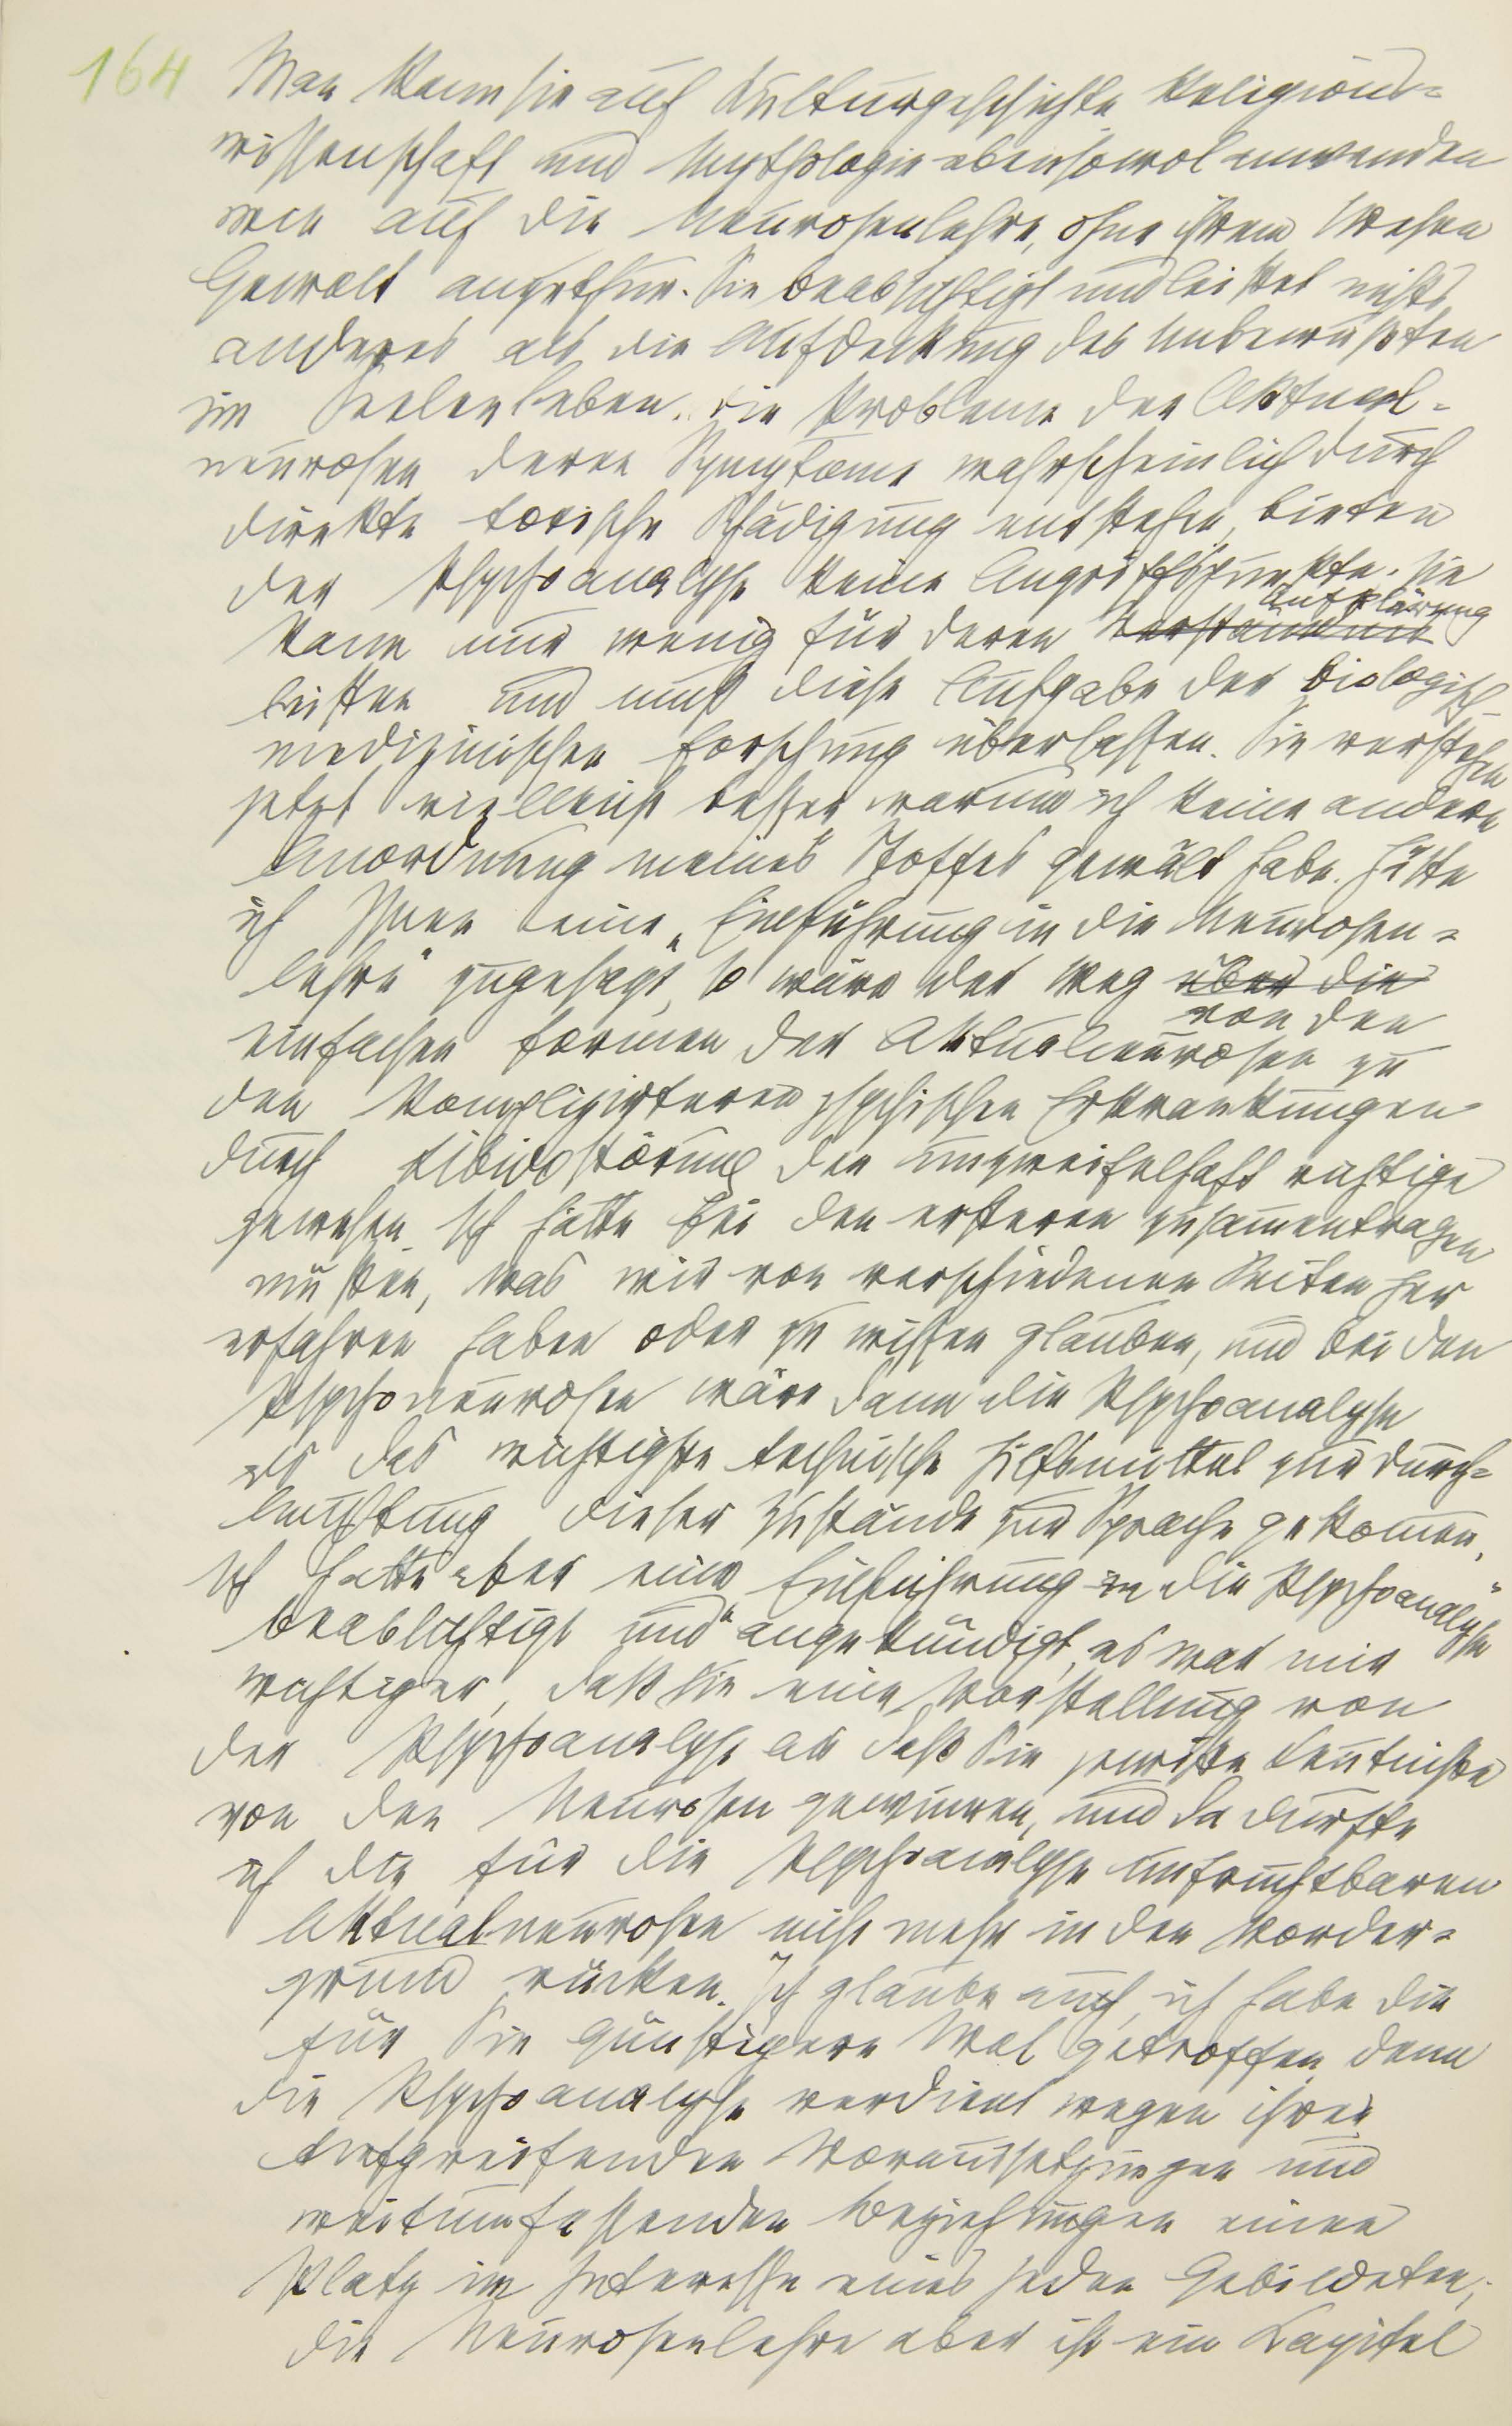 164
Man kann sie auf Kulturgeschichte Religions=
wissenschaft und Mythologie ebensowol anwenden
wie auf die Neurosenlehre, ohne ihrem Wesen
Gewalt anzuthun. Sie beabsichtigt und leistet nichts
anderes als die Aufdeckung des Unbewußten
im Seelenleben. Die Probleme der Aktual-
neurosen deren Symptome wahrscheinlich durch
direkte toxische Schädigung entstehen, bieten
der Psychoanalyse keine Angriffspunkte. Sie
Aufklärung
kann nur wenig für deren Verständnis
leisten und muß diese Aufgabe der biologisch-
medizinischen Forschung überlassen. Sie verstehen
jetzt vielleicht besser warum ich keine andere
Anordnung meines Stoffes gewält habe. Hätte
ich Ihnen eine „Einführung in die Neurosen=
lehre" zugesagt, so wäre der Weg über die
von den
einfachen Formen der Aktualneurosen zu
den komplizirteren psychischen Erkrankungen
durch Libidostörung der unzweifelhaft richtige
gewesen. Ich hätte bei den ersteren zusamentragen
müssen, was wir von verschiedenen Seiten her
erfahren haben oder zu wissen glauben, und bei den
Psychoneurosen wäre dann die Psychoanalyse
als das wichtigste technische Hilfsmittel zur Durch=
leuchtung dieser Zustände zur Sprache gekomen.
Ich hatte aber eine „Einführung in die Psychoanalyse"
beabsichtigt und angekündigt, es war mir
wichtiger, daß Sie eine Vorstellung von
der Psychoanalyse als daß Sie gewisse Kentnisse
von den Neurosen gewinnen, und da durfte
ich die für die Psychoanalyse unfruchtbaren
Aktualneurosen nicht mehr in den Vorder=
grund rücken. Ich glaube auch, ich habe die
für Sie günstigere Wal getroffen, denn
die Psychoanalyse verdient wegen ihrer
tiefgreifenden Voraussetzungen und
weitumfassenden Beziehungen einen
Platz im Interesse eines jeden Gebildeten;
die Neurosenlehre aber ist ein Kapitel